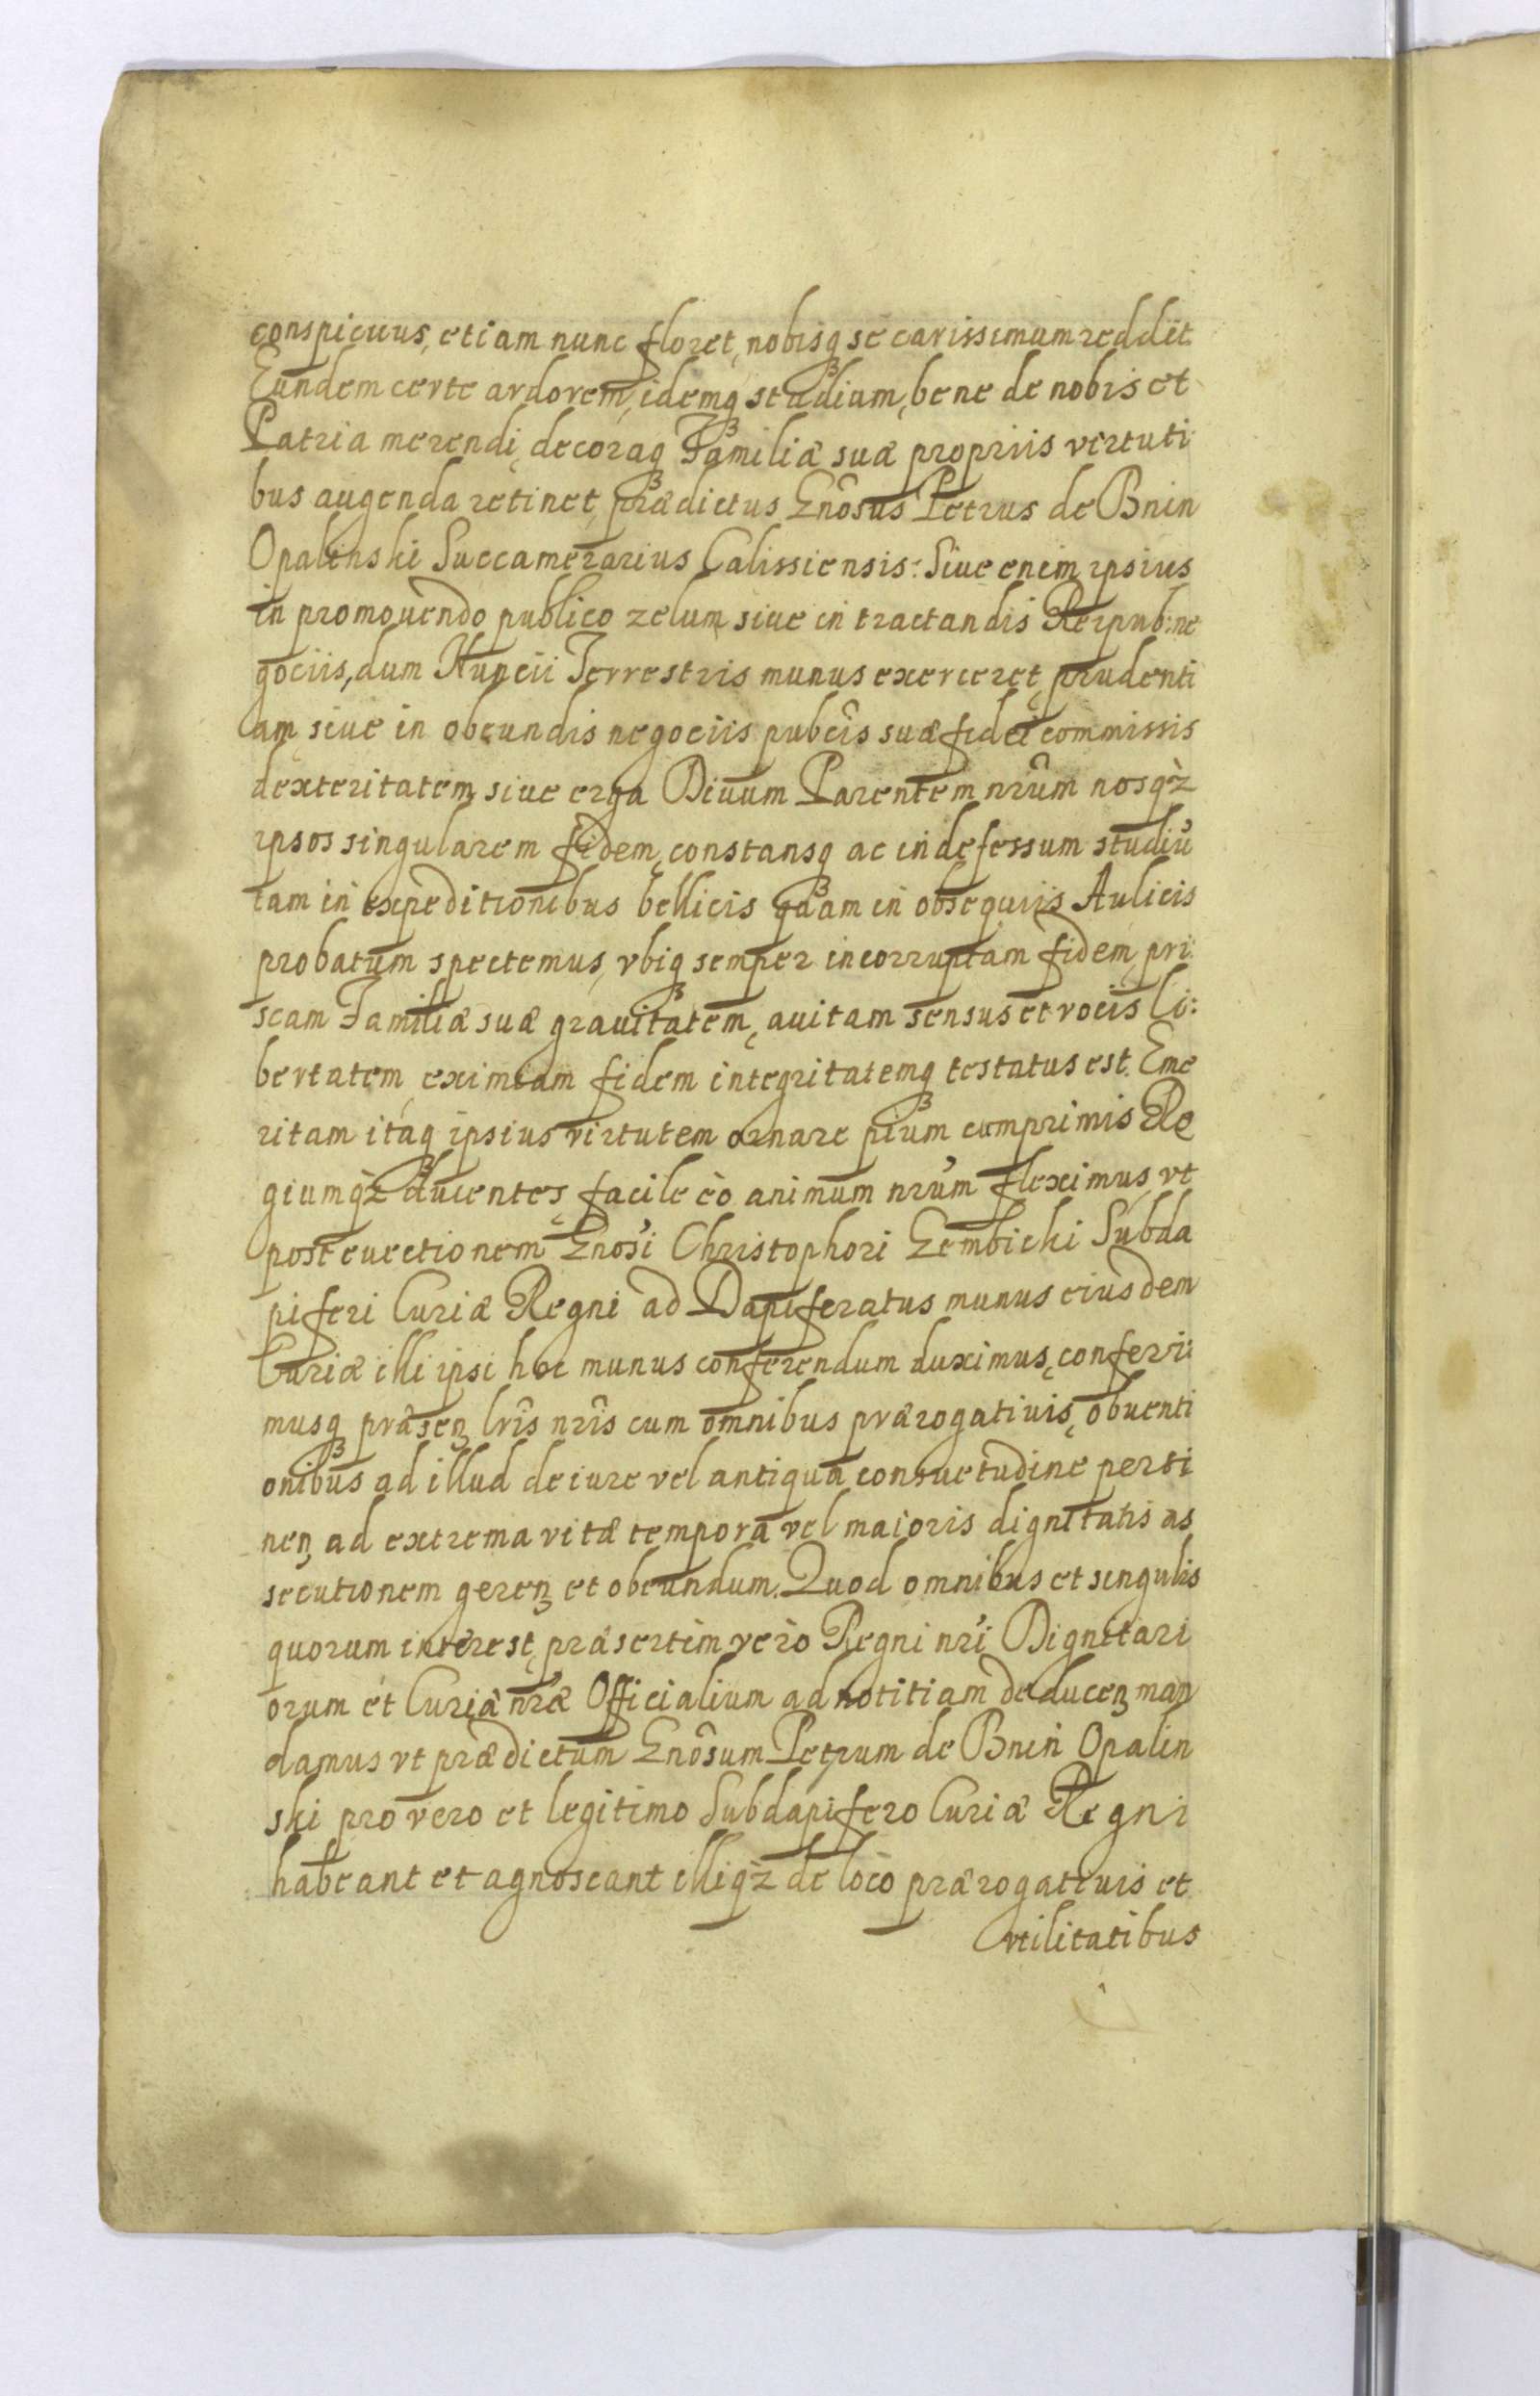 conspicuus, etiam nunc floret, nobisqꝫ se carissimum reddit.
Eundem certe ardorem, idemqꝫ studium, bene de nobis et
Patria merendi, decoraqꝫ Familiæ suæ propriis virtuti
bus augenda retinet, prædictus Gnôsus Petrus de Bnin
Opalinski Succamerarius Calissiensis: Siue enim ipsius
in promouendo publico zelum, siue in tractandis Reipub: ne
gociis, dum Nuncii Terrestris munus exerceret, prudenti
am, siue in obeundis negociis publîs suæ fidei commissis
dexteritatem, siue erga Diuum Parentem nrûm nosqꝫ
ipsos singularem fidem, constansqꝫ ac indefessum studiũ
tam in expeditionibus bellicis quam in obsequiis Aulicis
probatum spectemus, vbiqꝫ semper incorruptam fidem, pri
scam Familiæ suæ grauitatem, auitam sensus et vocis li:
bertatem, eximiam fidem integritatemqꝫ testatus est. Eme
ritam itaqꝫ ipsius virtutem ornare pium cumprimis Re
giumqꝫ ducentes, facile eò animum nrũm fleximus, vt
post euectionem Gnosi Christophori Zembicki Subda
piferi Curiæ Regni ad Dapiferatus munus eiusdem
Curiæ illi ipsi hoc munus conferendum duximus, conferi:
musqꝫ præsenꝫ lrîs nrîs cum omnibus prærogatiuis, obuenti
onibus ad illud de iure vel antiqua consuetudine perti
nenꝫ ad extrema vitæ tempora vel maioris dignitatis as
secutionem gerenꝫ et obeundum. Quod omnibus et singulis
quorum interest, præsertim verò Regni nrî Dignitari
orum et Curiæ nræ Officialium ad notitiam deducenꝫ man
damus vt prædictum Gnôsum Petrum de Bnin Opalin
ski pro vero et legitimo Subdapifero Curiæ Regni
habeant et agnoscant illiqꝫ de loco prærogatiuis et
vtilitatibus